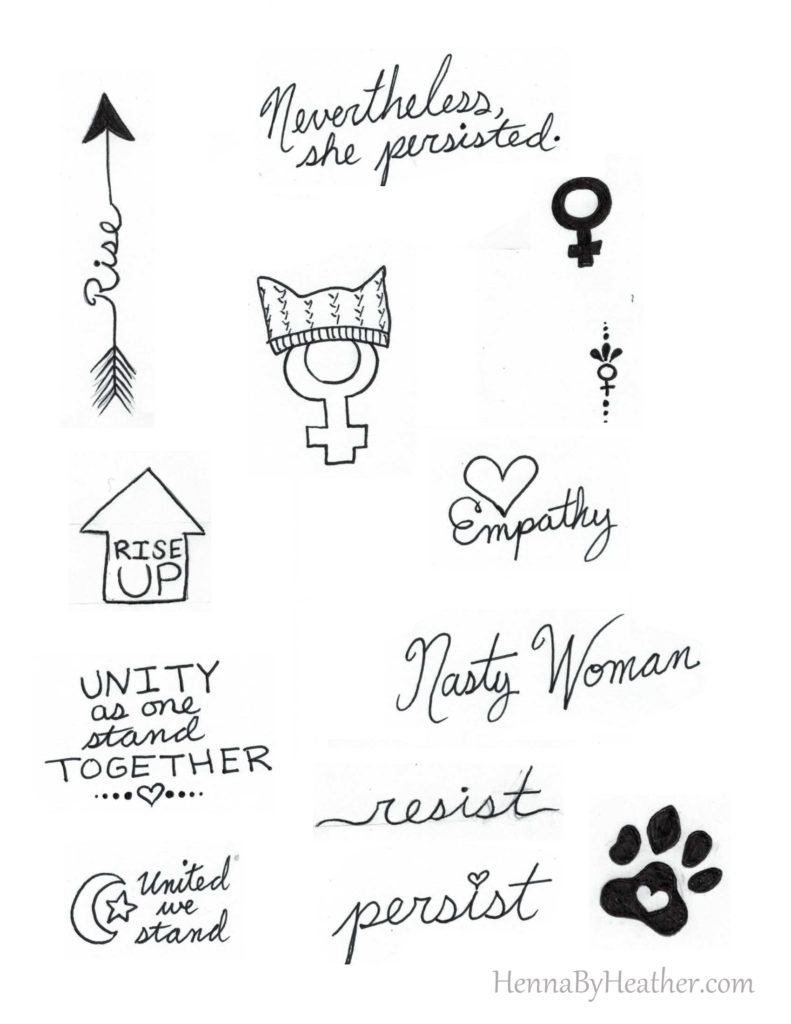 Nevertheless,
she persisted.
Rise
RISE
UP
Empathy
Nasty Woman
UNITY
as one
stand
TOGETHER
resist
United
we
stand
persist
HennaByHeather.com